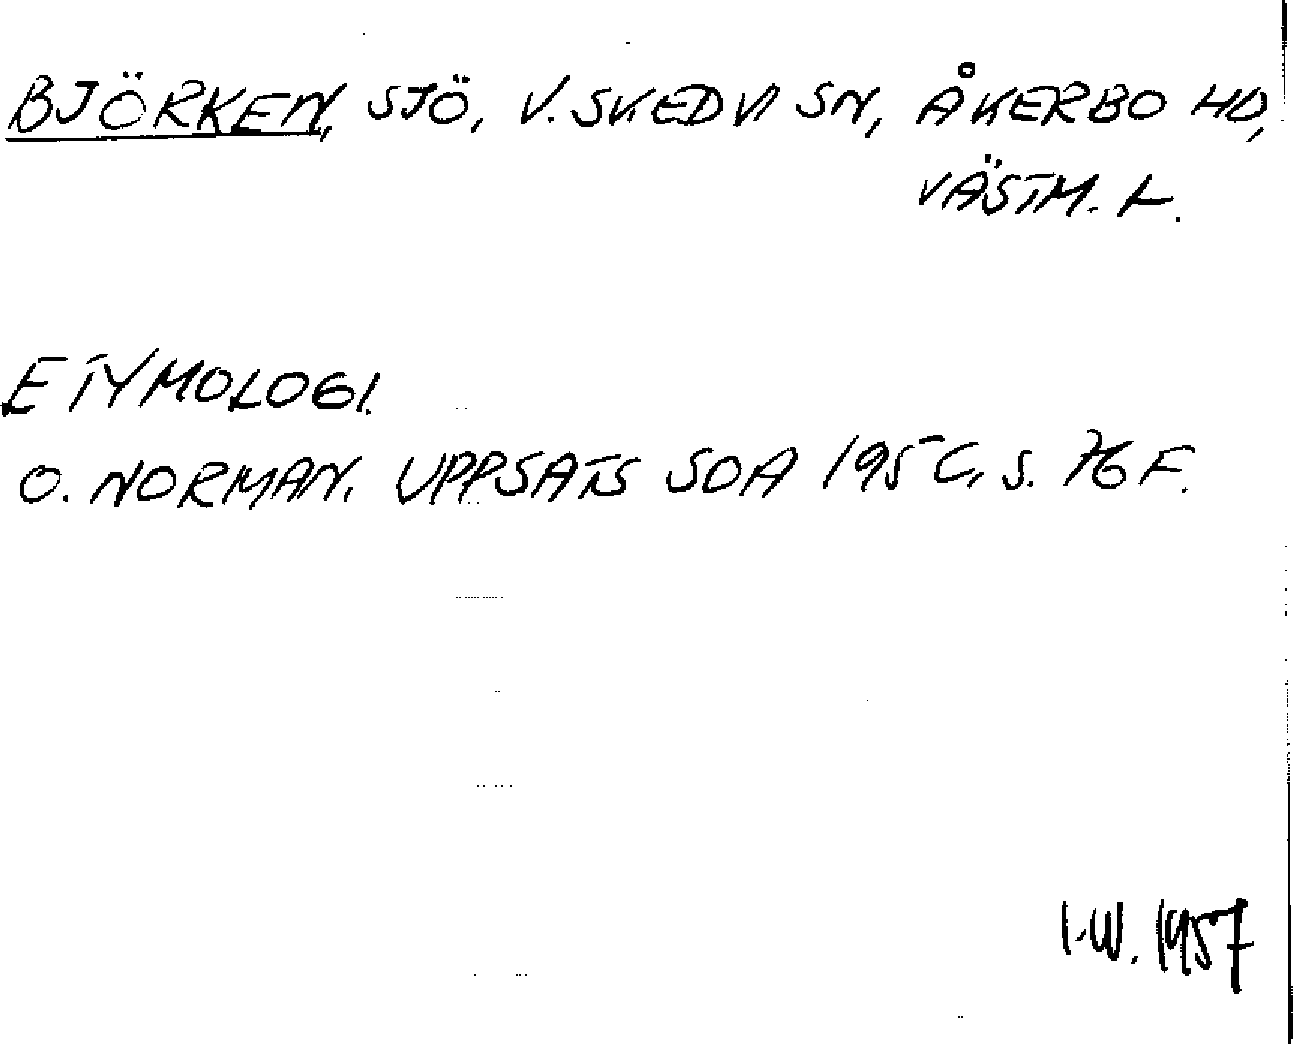 BJÖRKEN, SJÖ, V. SKEDVI SN, ÅKERBO HD,
VÄSTM. L.
ETYMOLOGI.
O. NORMAN. UPPSATS SOA 1956, S. 76 F.
I.W. 1957